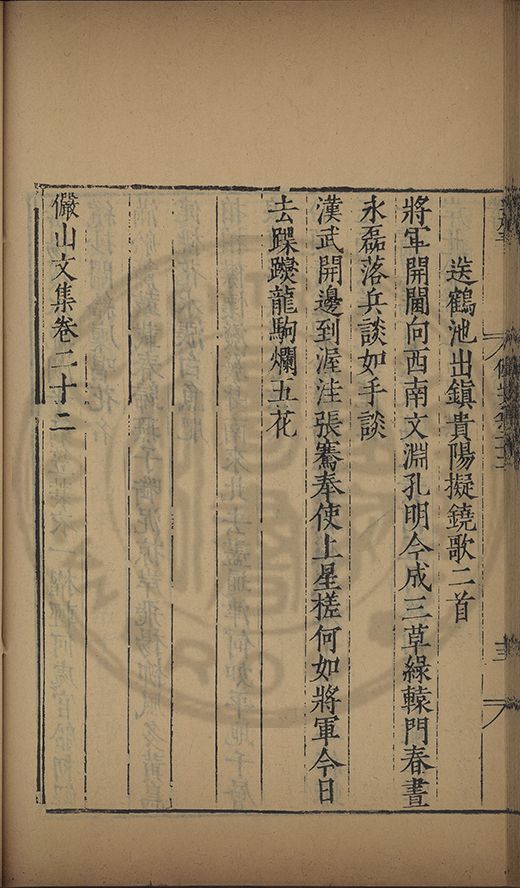 送鶴池出鎮貴陽擬鐃歌二首
將軍開閫向西南文淵孔明今成三草綠轅門春晝
永磊落兵談如手談
漢武開邊到渥洼張騫奉使上星槎何如將軍今日
去躞蹀龍駒爛五花
儼山文集卷二十二